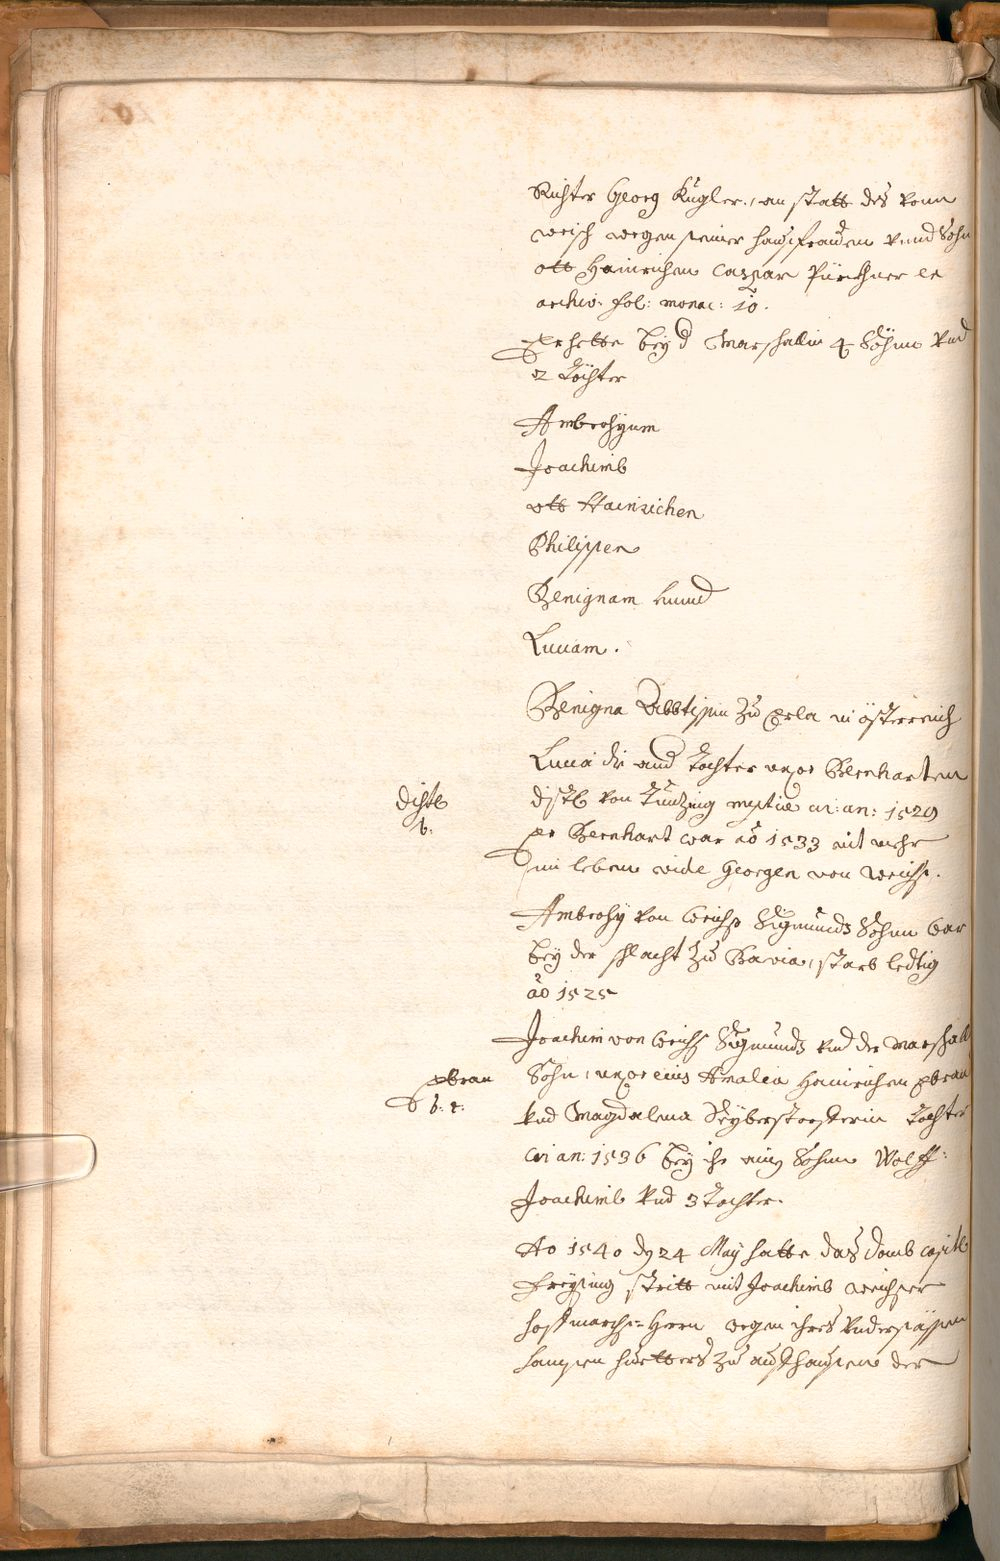 Richter Georg Kugler, an statt des von
weich wegen seiner hausfrauen vnd Sohn
ott Hainrichen Caspar Pürkhner ex
archiv: fol: monac: 10.
Er hette bey d Marshallin 4 Söhne vnd
2 Töchter
Ambrosyum
Joachimb
ott Hainrichen
Philippen
Benignam vnnd
Luciam.
Benigna Abbtissin zu Erla in österreich
Lucia die and Tochter uxor Bernharten
distl von Tunzing nuptiæ ai: an: 1529
Distl
b:
er Bernhart war ao 1533 nit mehr
im leben vide Georgen von Weichs.
Ambrosy von Weichs Sigmunds Sohn war
bey der schlacht zu Bavia, starb ledtig
ao 1525
Joachim von Weichs Sigmunds vnd der Marshall
Sohn, uxor eius Amalia Hainrichen Ebran
Ebran
b: t:
vnd Magdalena Seyberstorfferin Tochter
an: 1536 bey ihr ainig Sohn Wolff:
Joachimb vnd 3 Tochter.
Ao 1540 dy 24 May hatte das Domb capitl
Freysing stritt mit Joachimb weichser
hoffmarchs-Herrn wegen ihres Vndersässen
hannsen huetters zu aufhausen der